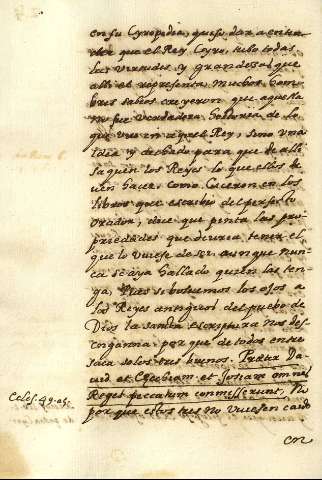 en su Cyropedia, quiso dar a enten
der que el Rey Cyro, tubo todas
las virtudes y grandezas que
alli el representa. Muchos hom
bres sabios creyeron que aquella
no fue verdadera historia de lo
que vuo en aquel Rey, sino vna
idea y dechado para que de alli
saquen los Reyes lo que ellos de
uen hacer, como Ciceron en los
libros que escribio del perfecto
orador, dice que pinta las pro
priedades que deuria tener el
que lo vuiese de ser aunque nun
ca se aya hallado quien las ten
ga. Mas si boluemos los ojos a
los Reyes antiguos del pueblo de
Dios la santa escriptura nos des
enganna: por que de todos entre
saca solos tres buenos. Præter Da
uid et Ezechiam et Josiam omnes
Reges peccatum commisserunt,
Ecles. 49. a 5.
por que estos tres no vuiesen caido
en